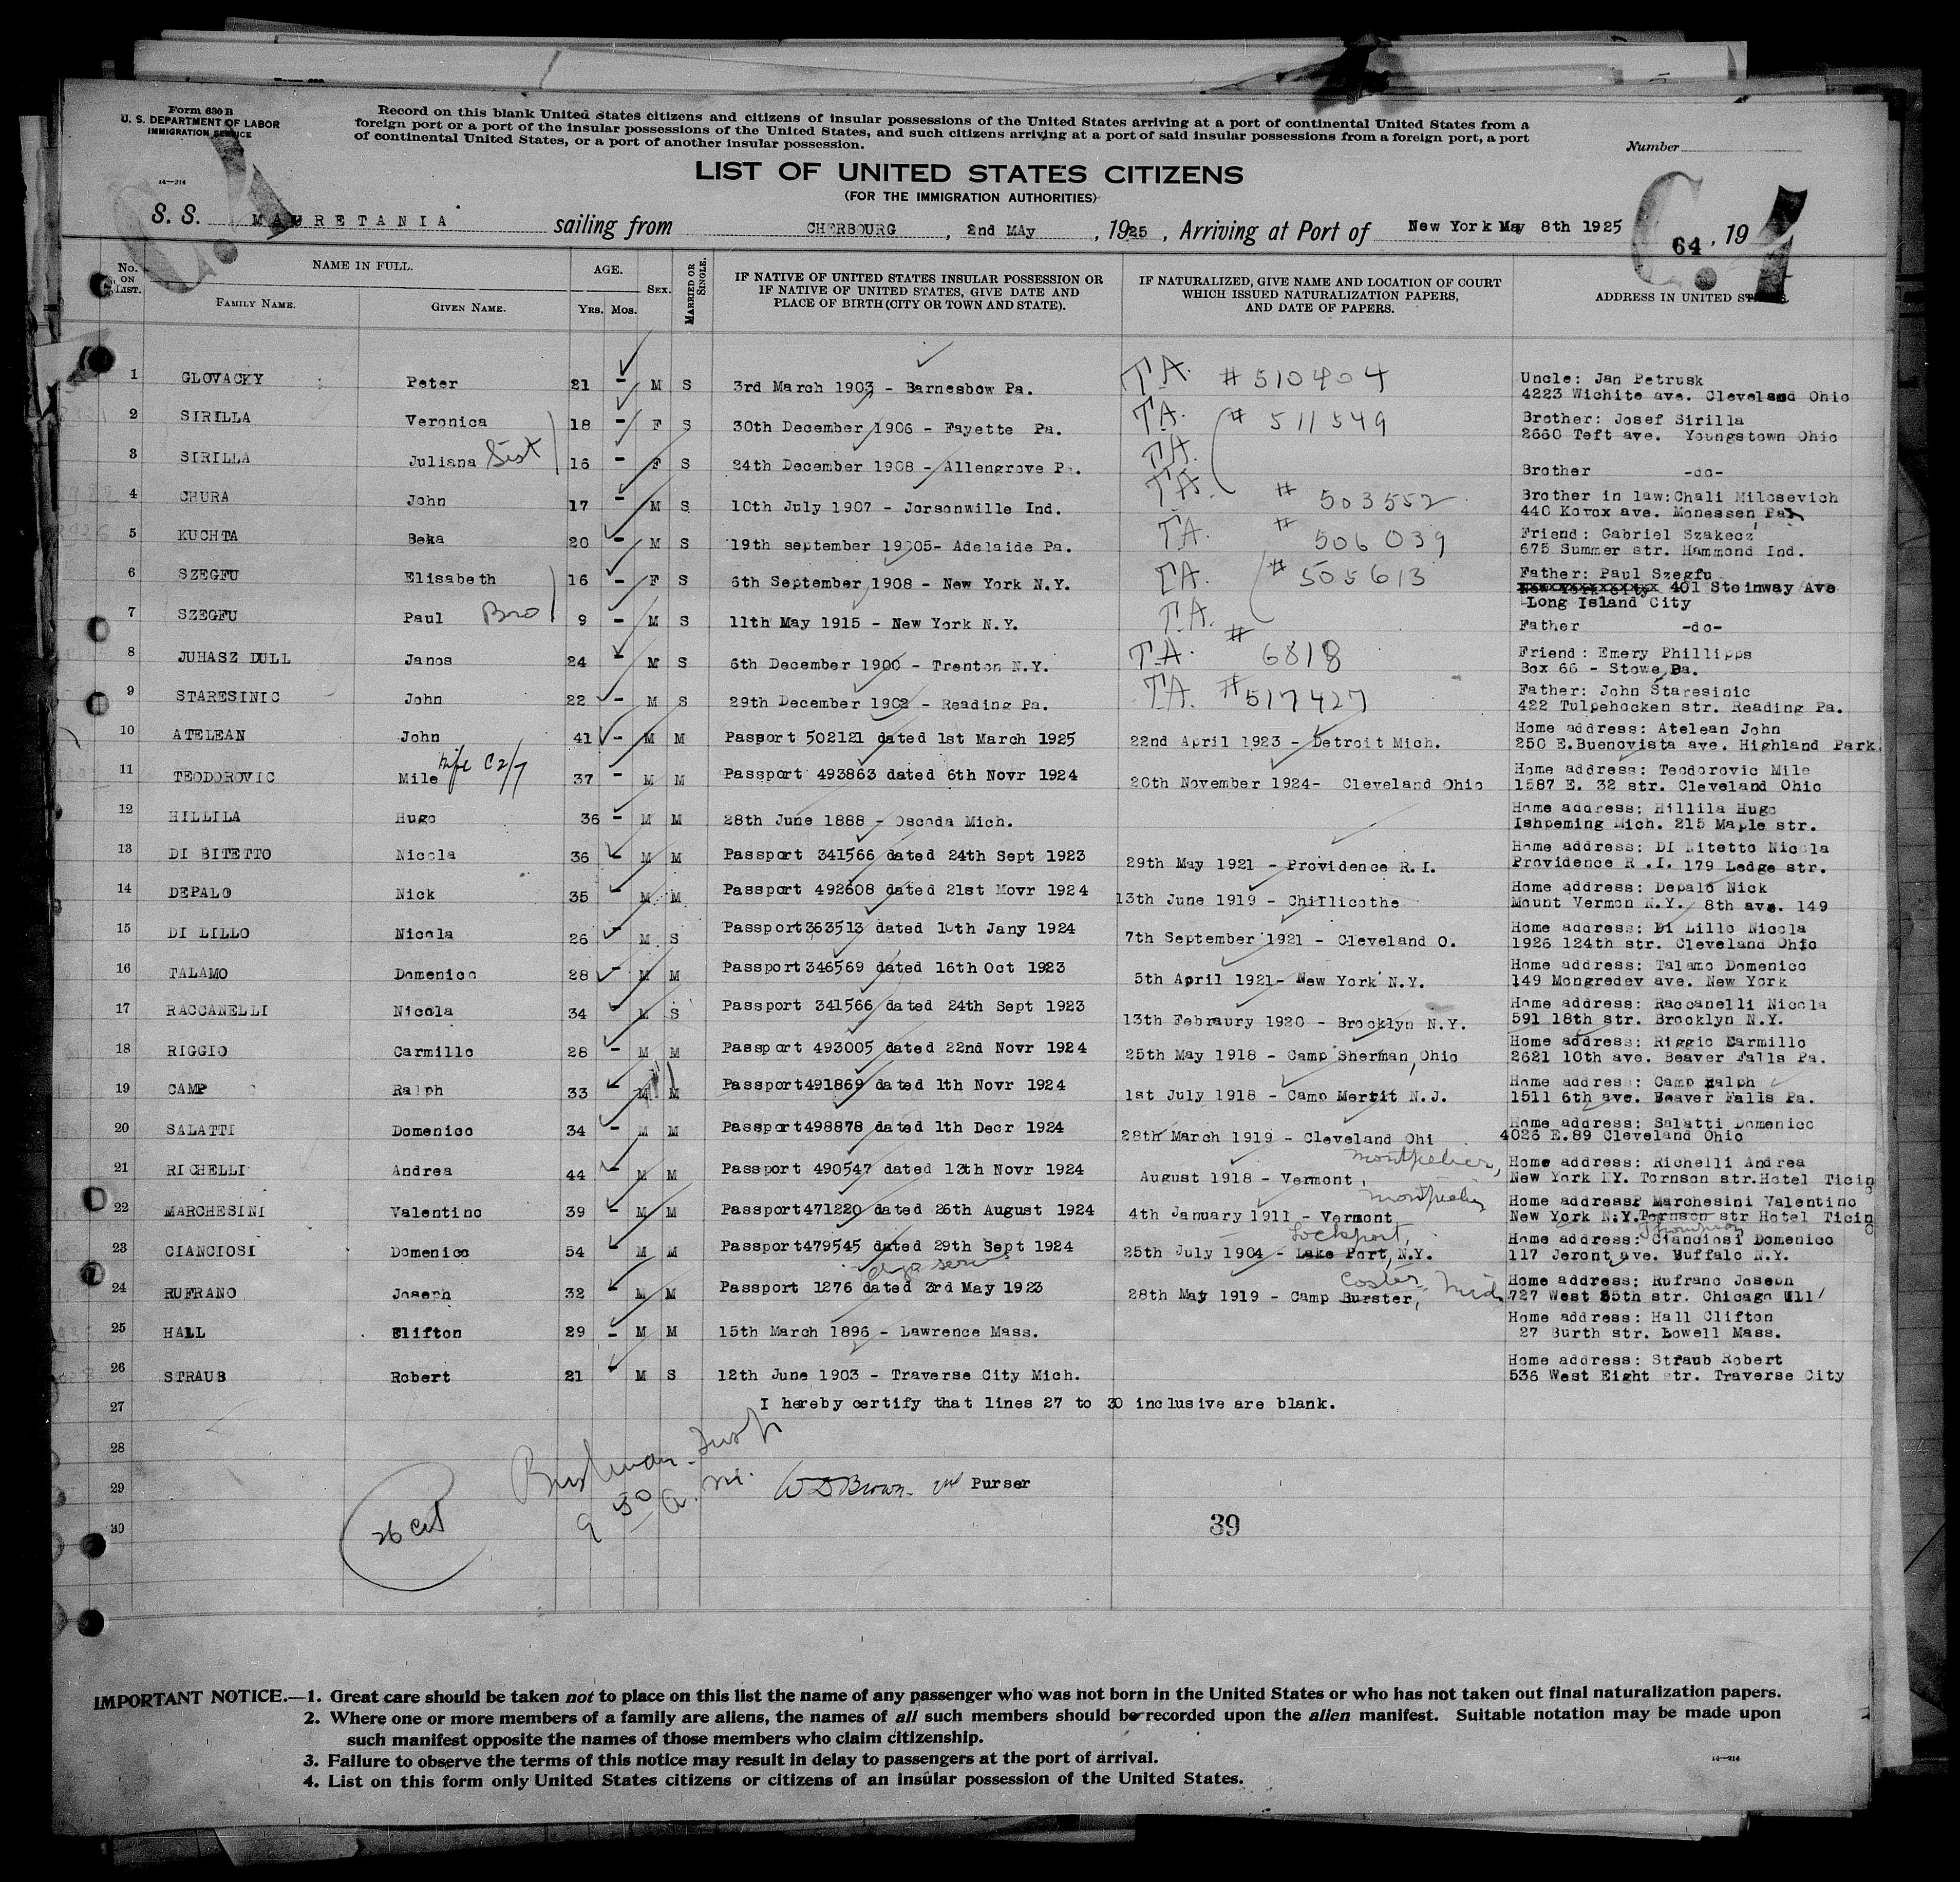 Form 630 B
U. S. DEPARTMENT OF LABOR
IMMIGRATION SERVICE
14—214
Record on this blank United States citizens and citizens of insular possessions of the United States arriving at a port of continental United States from a
foreign port or a port of the insular possessions of the United States, and such citizens arriving at a port of said insular possessions from a foreign port, a port
of continental United States, or a port of another insular possession.
Number
LIST OF UNITED STATES CITIZENS
(FOR THE IMMIGRATION AUTHORITIES)
S. S. MAURETANIA sailing from CHERBOURG, 2nd MAy, 1925, Arriving at Port of New York May 8th 1925 64, 19
No. ON LIST. NAME IN FULL. FAMILY NAME. GIVEN NAME. AGE. Yrs. Mos. SEX. MARRIED OR SINGLE. IF NATIVE OF UNITED STATES INSULAR POSSESSION OR IF NATIVE OF UNITED STATES, GIVE DATE AND PLACE OF BIRTH (CITY OR TOWN AND STATE). IF NATURALIZED, GIVE NAME AND LOCATION OF COURT WHICH ISSUED NATURALIZATION PAPERS, AND DATE OF PAPERS. ADDRESS IN UNITED STATES.
1 GLOVACKY Peter 21 - M S 3rd March 1903 - Barnesbow Pa. T.A. # 510404 Uncle: Jan Petrusk
4223 Wichite ave. Cleveland Ohio
2 SIRILLA Veronica 18 - F S 30th December 1906 - Fayette Pa. T.A. # 511549 Brother: Josef Sirilla
2660 Teft ave. Youngstown Ohio
3 SIRILLA Juliana Sist 16 - F S 24th December 1908 - Allengrove Pa. T.A. Brother -do-
4 CHURA John 17 - M S 10th July 1907 - Jorsonwille Ind. T.A. # 503552 Brother in law: Chali Milosevich
440 Kovox ave. Monessen Pa
5 KUCHTA Beka 20 - M S 19th september 19005- Adelaide Pa. T.A. # 506039 Friend: Gabriel Szakecz
675 Summer str. Hammond Ind.
6 SZEGFU Elisabeth 16 - F S 6th September 1908 - New York N.Y. T.A. # 505613 Father: Paul Szegfu
New York City 401 Steinway Ave
Long Island City
7 SZEGFU Paul Bro 9 - M S 11th May 1915 - New York N.Y. T.A. Father -do-
8 JUHASZ DULL Janos 24 - M S 6th December 1900 - Trenton N.Y. T.A. # 6818 Friend: Emery Phillipps
Box 66 - Stowe Pa.
9 STARESINIC John 22 - M S 29th December 1902 - Reading Pa. T.A. # 517427 Father: John Staresinic
422 Tulpehocken str. Reading Pa.
10 ATELEAN John 41 - M M Passport 502121 dated 1st March 1925 22nd April 1923 - Detroit Mich. Home address: Atelean John
250 E.Buenovista ave. Highland Park
11 TEODOROVIC Mile Wife C 2/7 37 - M M Passport 493863 dated 6th Novr 1924 20th November 1924- Cleveland Ohio Home address: Teodorovic Mile
1587 E. 32 str. Cleveland Ohio
12 HILLILA Hugo 36 - M M 28th June 1888 - Oscoda Mich. Home address: Hillila Hugo
Ishpeming Mich. 215 Maple str.
13 DI BITETTO Nicola 36 - M M Passport 341566 dated 24th Sept 1923 29th May 1921 - Providence R.I. Home address: DI Bitetto Nicola
Providence R .I. 179 Ledge str.
14 DEPALO Nick 35 - M M Passport 492608 dated 21st Movr 1924 13th June 1919 - Chillicothe Home address: Depalo Nick
Mount Vermon N.Y. 8th ave. 149
15 DI LILLO Nicola 26 - M S Passport 363513 dated 10th Jany 1924 7th September 1921 - Cleveland O. Home address: Di Lillo Nicola
1926 124th str. Cleveland Ohio
16 TALAMO Domenico 28 - M M Passport 346569 dated 16th Oct 1923 5th April 1921- New York N.Y. Home address: Talamo Domenico
149 Mongredev ave. New York
17 RACCANELLI Nicola 34 - M S Passport 341566 dated 24th Sept 1923 13th Febraury 1920 - Brooklyn N.Y. Home address: Raccanelli Nicola
591 18th str. Brooklyn N.Y.
18 RIGGIO Carmillo 28 - M M Passport 493005 dated 22nd Novr 1924 25th May 1918 - Camp Sherman, Ohio Home address: Riggio Carmillo
2621 10th ave. Beaver Falls Pa.
19 CAMP Ralph 33 - M M Passport 491869 dated 1th Novr 1924 1st July 1918 - Camp Merrit N.J. Home address: Camp Ralph
1511 6th ave. Beaver Falls Pa.
20 SALATTI Domenico 34 - M M Passport 498878 dated 1th Decr 1924 28th March 1919 - Cleveland Ohi Home address: Salatti Domenico
4026 E.89 Cleveland Ohio
21 RICHELLI Andrea 44 - M M Passport 490547 dated 12th Novr 1924 August 1918 - Vermont, Montpelier, Home address: Richelli Andrea
New York NY. Tornson str.Hotel Ticino
22 MARCHESINI Valentino 39 - M M Passport 471220 dated 26th August 1924 4th January 1911 - Vermont Montpelier Home address: Marchesini Valentino
New York N.Y. Tornson str Hotel Ticino
Thompson
23 CIANCIOSI Domenico 54 - M M Passport 479545 dated 29th Sept 1924 25th July 1904 - Lake Port, N.Y. Lockport, Home address: Cianciosi Domenico
117 Jeront ave. Buffalo N.Y.
24 RUFRANO Joseph 32 - M M Passport 1276 dated 3rd May 1923 28th May 1919 - Camp Burster, Custer Mich Home address: Rufrano Joseph
727 West 25th str. Chicago Ill
25 HALL Clifton 29 - M M 15th March 1896 - Lawrence Mass. Home address: Hall Clifton
27 Burth str. Lowell Mass.
26 STRAUB Robert 21 - M S 12th June 1903 - Traverse City Mich. Home address: Straub Robert
536 West Eight str. Traverse City
27 I hereby certify that lines 27 to 30 inclusive are blank.
28
29 9 50 a.m. W D Brown 2nd Purser
30 26 Cit 39
IMPORTANT NOTICE.—1. Great care should be taken not to place on this list the name of any passenger who was not born in the United States or who has not taken out final naturalization papers.
2. Where one or more members of a family are aliens, the names of all such members should be recorded upon the alien manifest. Suitable notation may be made upon
such manifest opposite the names of those members who claim citizenship.
3. Failure to observe the terms of this notice may result in delay to passengers at the port of arrival.
14—214
4. List on this form only United States citizens or citizens of an insular possession of the United States.